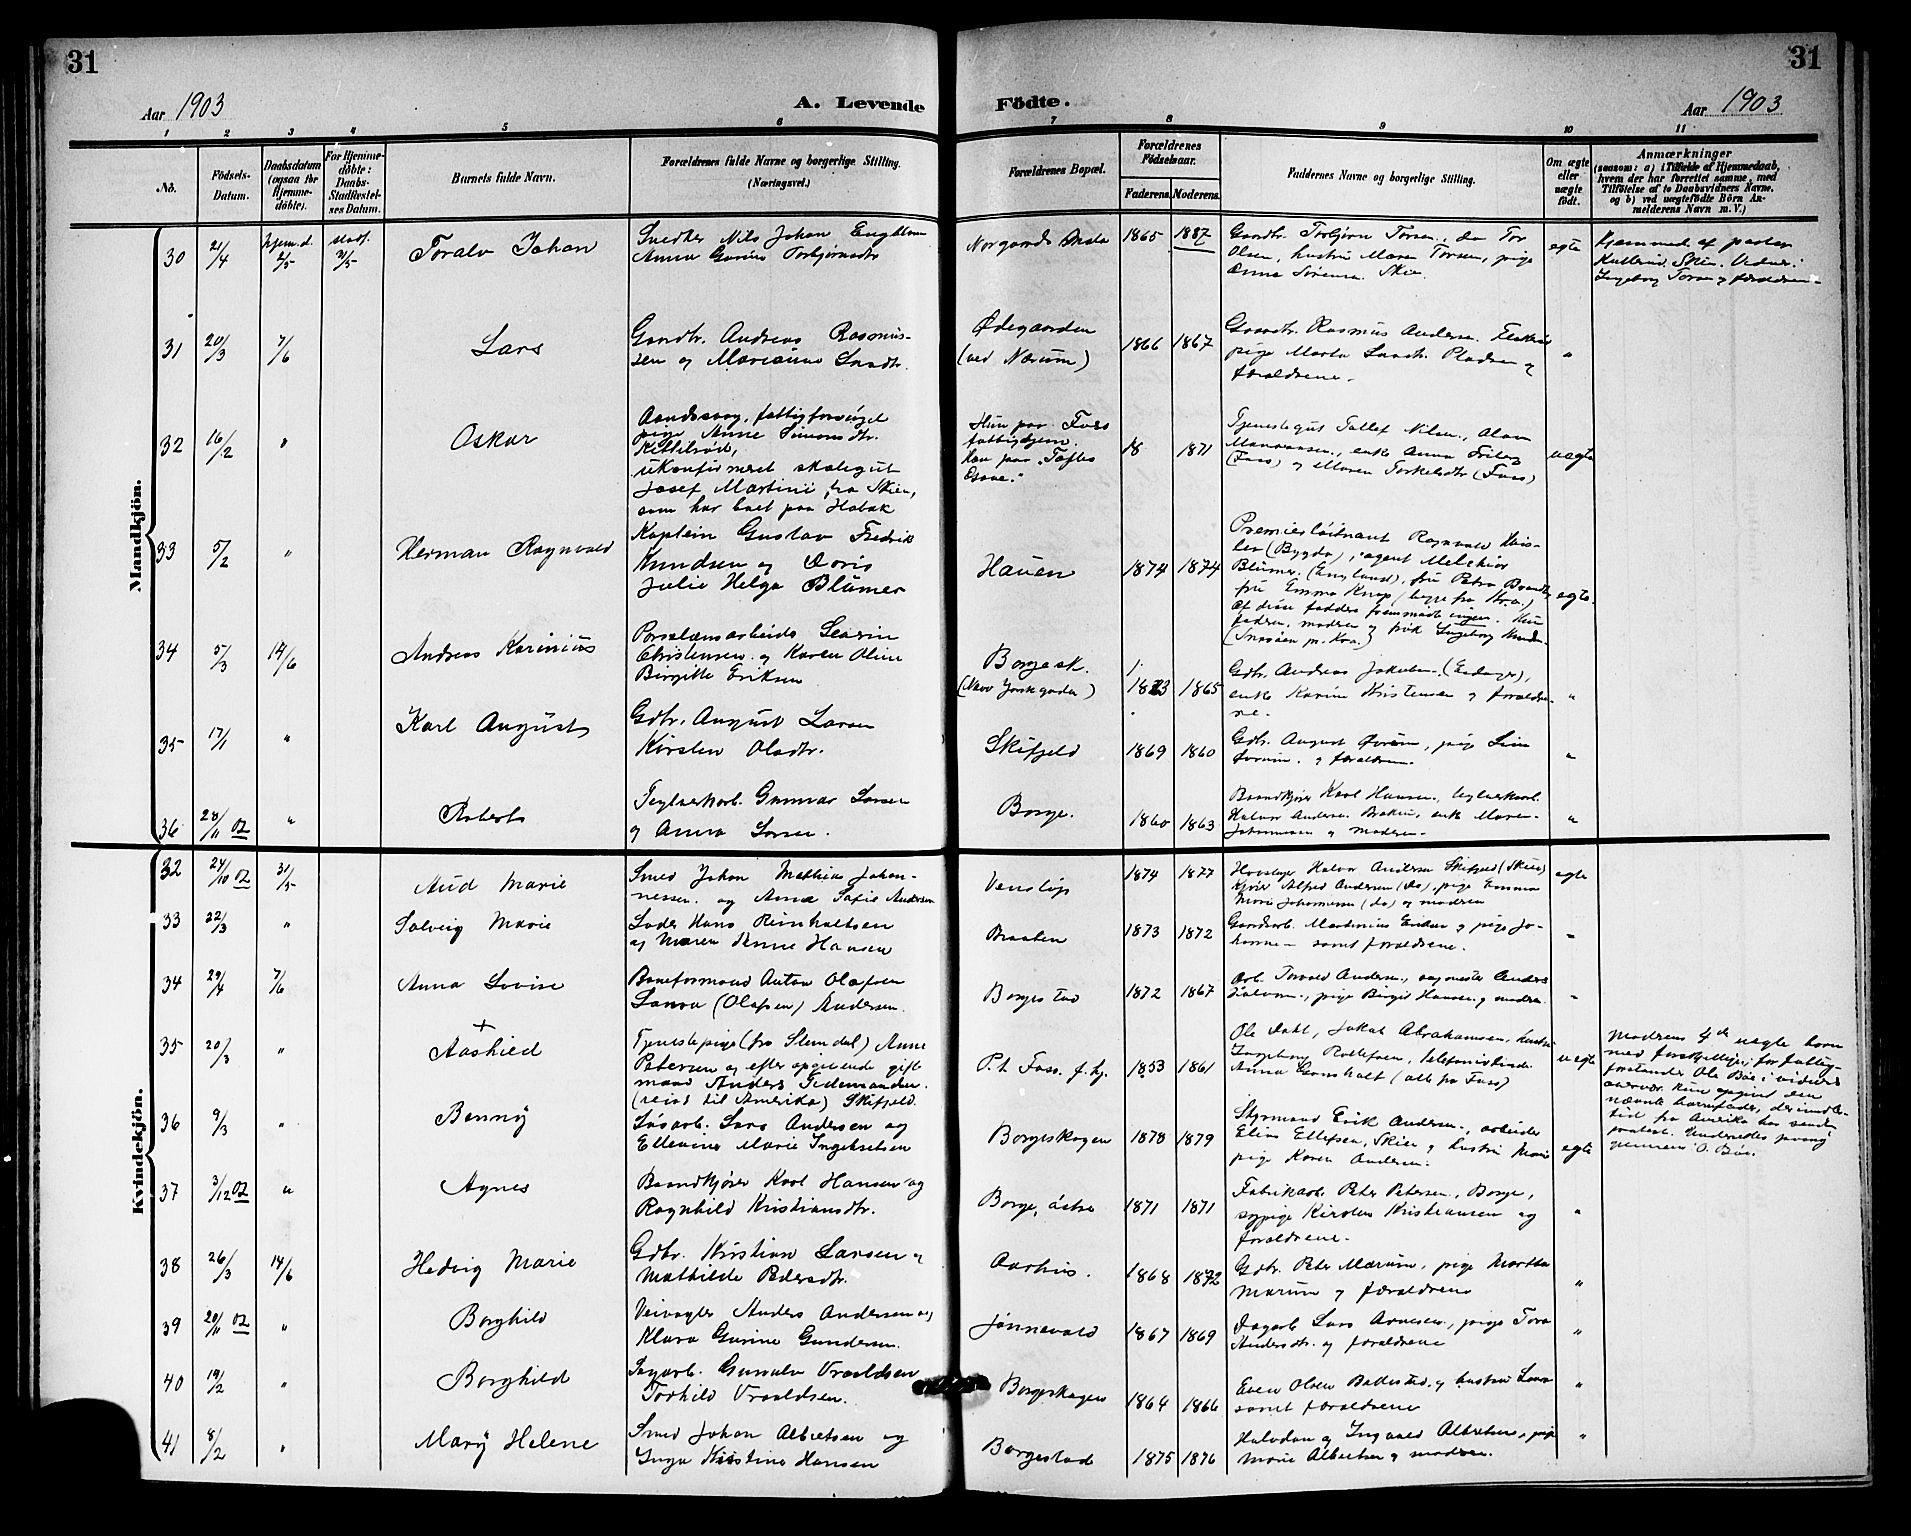 31
31
Aar 1903
A. Levende
Födte.
Aar 1903
1 2 3 4 5 6 7 8 9 10 11
No.
Födsels-Datum.
Daabsdatum (ogsaa for Hjemme-döbte).
For Hjemme-döbte: Daabs-Stadfæstel-ses Datum.
Barnets fulde Navn.
Forældrenes fulde Navne og borgerlige Stilling.
(Næringsvei.)
Forældrenes Bopæl.
Forældrenes Födselsaar.
Faderens. Moderens.
Faddernes Navne og borgerlige Stilling.
Om ægte eller uægte födt.
Anmærkninger
(saasom: a) i Tilfælde af Hjemmedaab, hvem der har forrettet samme, med Tilföielse af to Daabsvidners Navne, og b) ved uægtefödte Börn Anmelderens Navn m. V.)
Mandkjön.
30 21/4 hjem.d. 2/5 stadf. 3/5 Toralv Johan
Snedker Nils Johan
Anna Gurine Torbjørnsdtr
1865 1887
Gaardbr. Torbjørn Torsen, do Tor
Olsen, hustru Maren Torsen, pige
Anna Sørensen Skien.
egte
Hjemmed. af pastor
Skien. Vidner:
Ingeborg Torsen og forældrene
31 20/3 7/6 Lars
Gaardbr. Andreas Rasmus-
sen og
Ødegaarden
(ved Nærum)
1866 1867
Gaardbr. Rasmus Andersen
pige Marta
forældrene.
"
32 16/2 " Oskar
Aandssvag, fattigforsørget
pige Anne Simonsdtr.
Kittilrød,
ukonfirmeret skolegut
Josef Martini fra Skien,
som har boet paa Hobæk
Hun paa Foss
fattighjem.
Han paa "Toftes
Gave."
18 1871
Tjenestegut Tallef Nilsen, Olav
enke Anna
(Foss) og Maren Torkelsdtr (Foss)
uegte
33 5/2 " Herman Ragnvald
Kaptein Gustav Fredrik
Knudsen og Doris
Julie Helga Blümer
Hauen
1874 1874
Premierløitnant Ragnvald
(Bygdø), agent Melchior
Blümer (England), fru Petra
fru Emma Knap (begge fra Kra.)
Af disse faddere fremmødt ingen. Kun
fadren, modren og frøk Ingeborg
(Snarøen pr. Kra.)
egte.
34 5/3 14/6 Andreas Karinius
Porselænsarbeider
Christensen og Karen Oline
Birgitte Eriksen
Borgesk.
(New Yorkgaden)
1873 1865
Gdbr. Andreas Jakobsen (Eidanger),
enke Karine Kristensen og forældre-
ne.
"
35 17/1 " Karl August
Gdbr. August Larsen
Kirsten Olsdtr.
Skifjeld
1869 1860
Gdbr. August
og forældrene.
"
36 28/11 02 " Robert
Teglverkarb. Gunnar Larsen
og Anna Larsen.
Borge.
1860 1863
Brandkjører Karl Hansen, teglverkarb.
Halvor Andersen enke Maren
Johannesen og modren
"
Kvindekjön.
32 24/10 02 31/5 Aud Marie
Smed Johan Mathias Johan-
nessen og Anna Sofie Andersen
Venstøp
1874 1877
Halvor Andersen Skifjeld (Skien)
Alfred Andersen (do), pige Emma
Marie Johannessen (do) og modren
egte
33 22/3 " Solveig Marie
Hans Reinholtsen
og Maren Hansen
Braaten
1873 1872
Martinius Eriksen og pige Jo-
hanne samt forældrene.
"
34 29/4 7/6 Anna Lovise
Baneformand Anton Olafsen
Laura (Olafsen) Andersen.
Borgestad
1872 1867
Arb. Torvald Andersen, Anders
pige Birgit Hansen og modren
"
35 20/3 " Aashild
Tjenestepige (fra Slemdal) Anne
Petersen og efter opgivende gift
mand Anders Tidemandsen
(reist til Amerika) Skifjeld.
P.t. Foss f. hj.
1853 1861
Ole Dahl, Jakob Abrahamsen, hustru
Ingeborg Rollefsen,
Anna Gonsholt (alle fra Foss)
uegte
Modrens 4de uegte barn
med forskjellige; for fattig-
forstander Ole Bøe i vidners
overvær. Hun opgivet den
nævnte barnefader, der imidler-
tid fra Amerika har sendt
protest.
O. Bøe.
36 9/3 " Benny
Lars Andersen og
Ellevine Marie Ingebretsen
Borgeskogen
1878 1879
Styrmand Erik Andersen, arbeider
Elias Ellefsen, Skien og hustru Marie
pige Karen Andersen.
egte
37 3/12 02 " Agnes
Brandkjører Karl Hansen og
Ragnhild Kristiansdtr.
Borge, østre
1871 1871
Fabrikarb. Peter Petersen, Borge,
sypige Kirsten Kristiansen og
forældrene.
"
38 26/3 14/6 Hedvig Marie
Gdbr. Kristian Larsen og
Mathilde Pedersdtr.
Aarhus.
1868 1872
Gdbr. Peter Mærum, pige Martha
Mærum og forældrene
"
39 20/11 02 " Borghild
Veivogter Anders Andersen og
Klara Gurine Gundersen.
Jønnevald
1867 1869
Dagarb. Lars Arnesen, pige Tora
Andersdtr. og forældrene
"
40 19/2 " Borghild
Sagarb. Gunulv Vraaldsen
Torhild Vraaldsen.
Borgeskogen
1864 1866
Even Olsen Ballestad og hustru Laura
samt forældrene
"
41 8/2 " Mary Helene
Smed Johan Albretsen og
Inga Kristine Hansen
Borgestad
1875 1876
Halvdan og Ingvald Albretsen, pige
Marie Albretsen og modren.
"